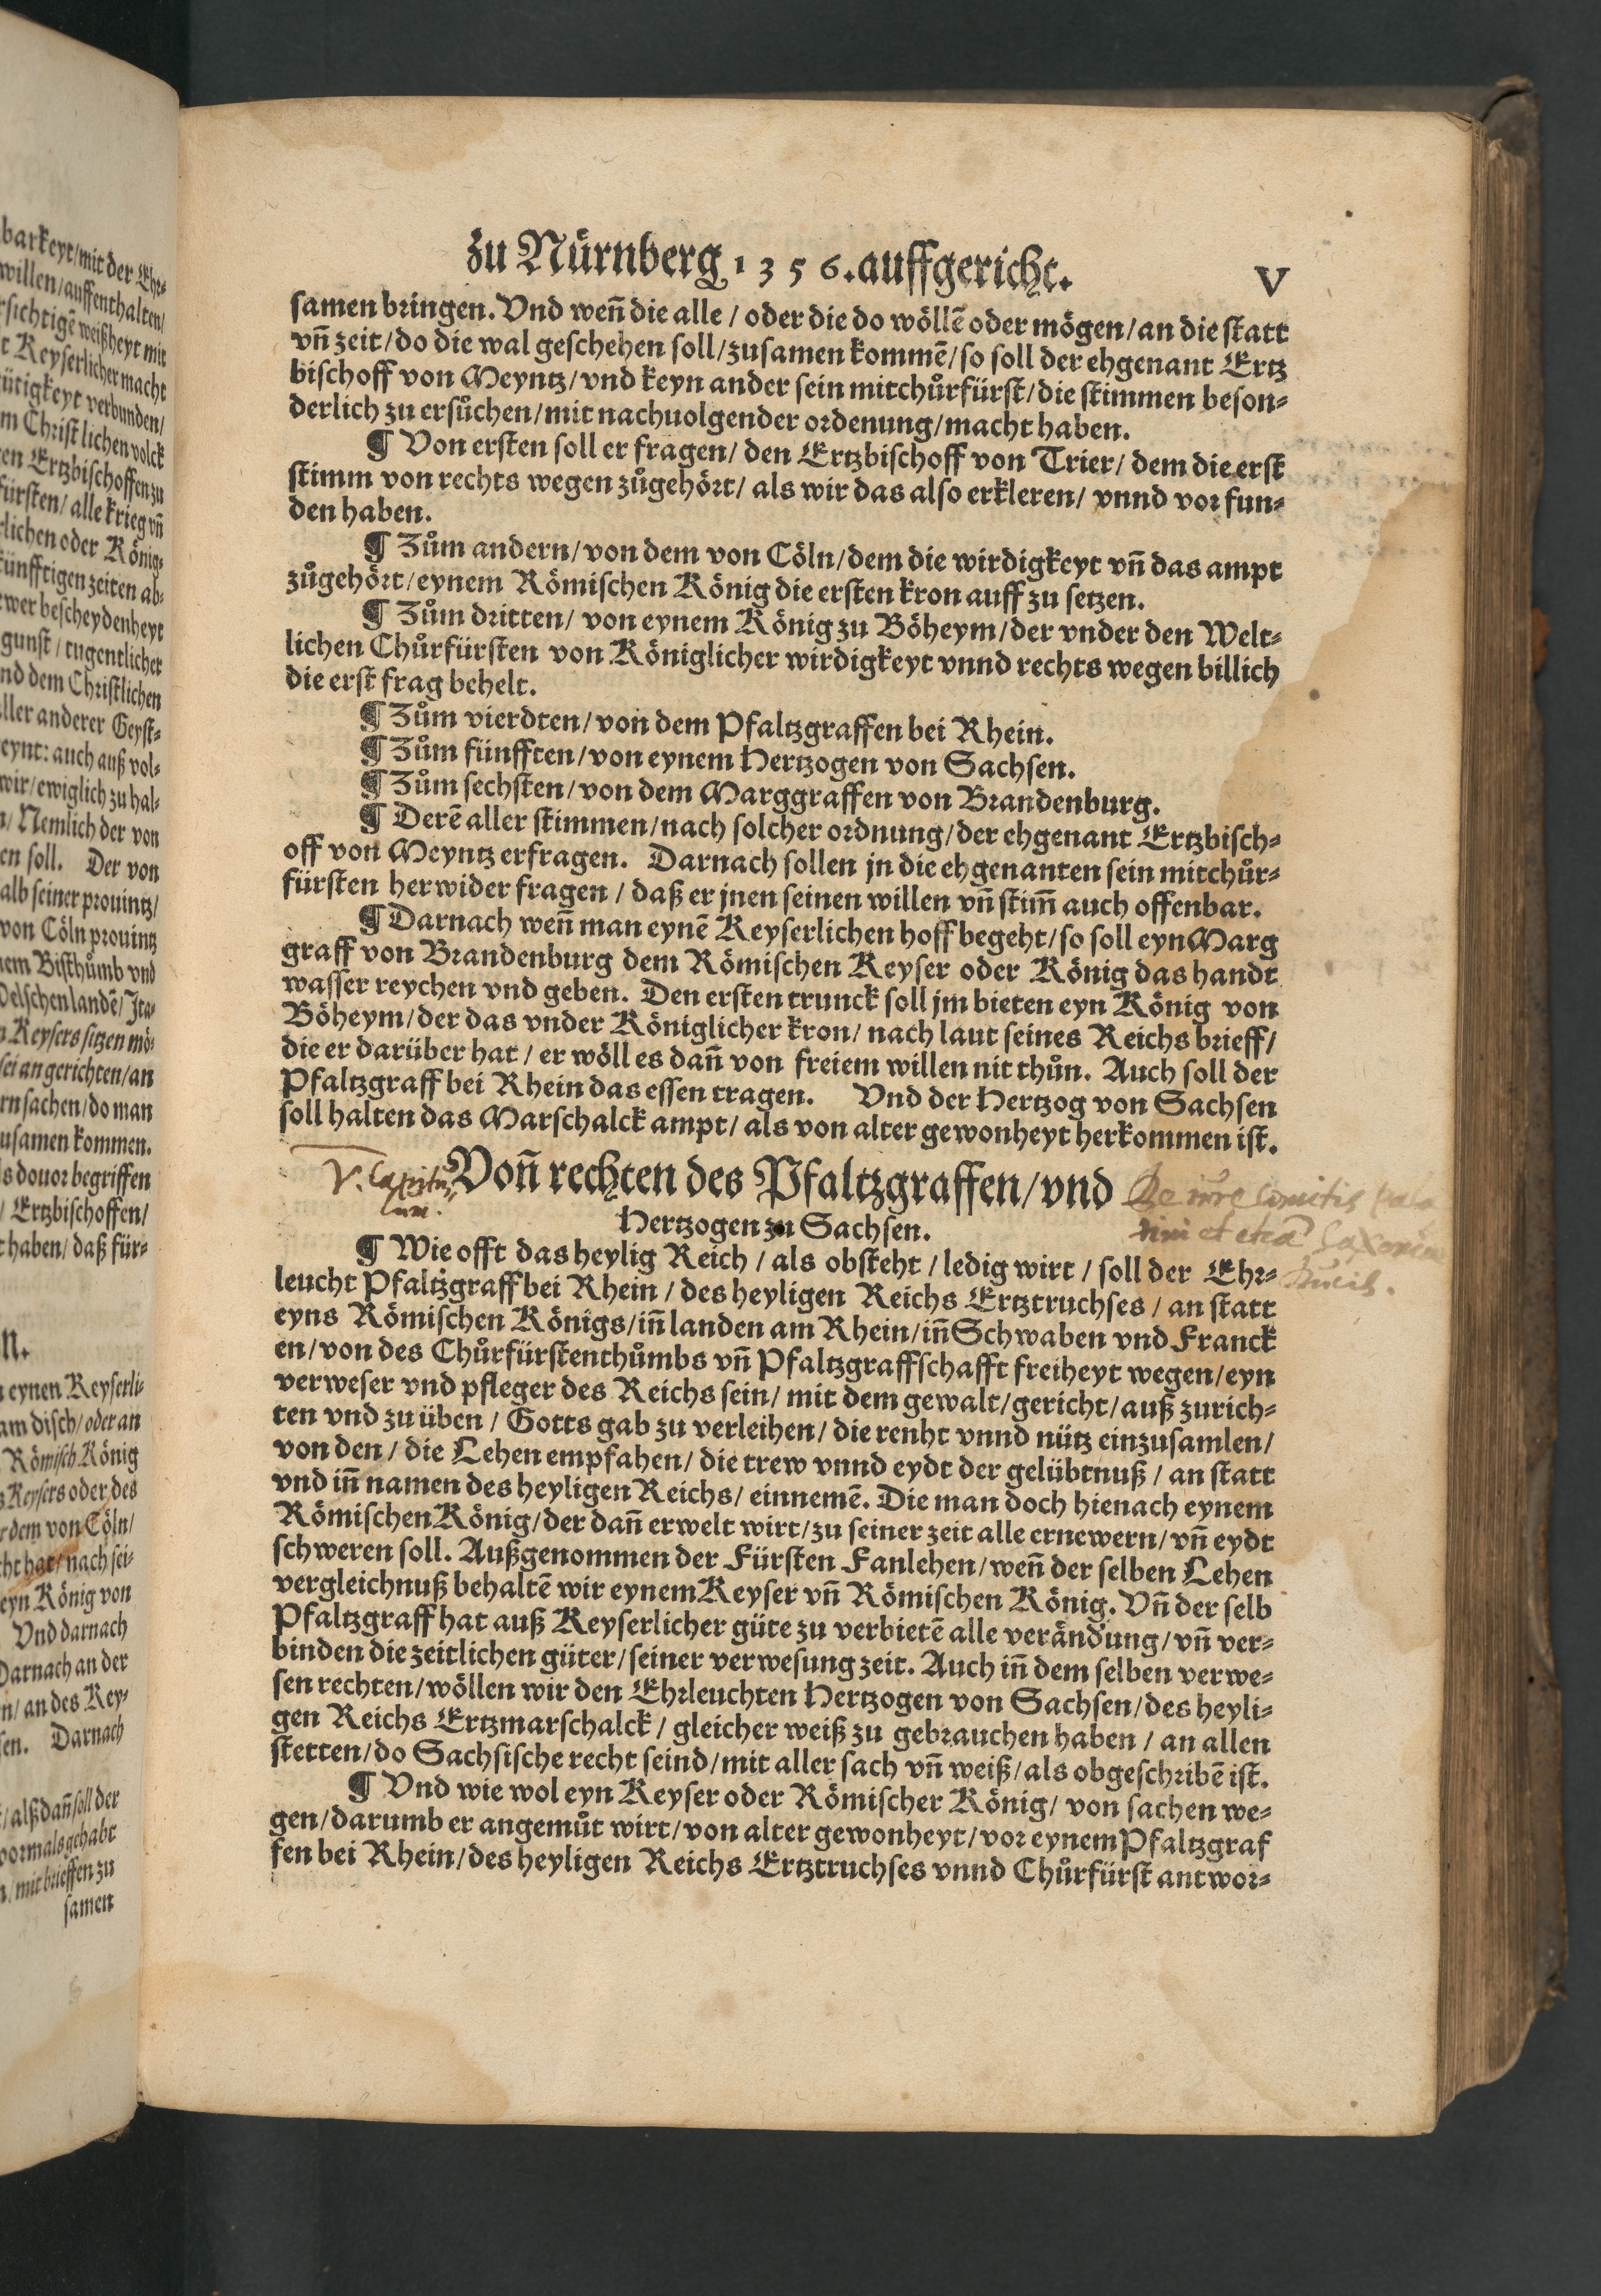 barkeyt/mit der Ehr⸗
willen/auffenthalten/
rsichtigē weißheyt mit
t Keyserlicher macht
ütigkeyt verbunden/
m Christlichen volck
en Ertzbischoffen zu
fürsten/alle krieg vñ
rlichen oder König⸗
künfftigen zeiten ab⸗
wer bescheydenheyt
gunst/tugentlicher
nd dem Christlichen
aller anderer Geyst⸗
eynt: auch auß vol⸗
wir/ewiglich zu hal⸗
n/Nemlich der von
en soll. Der von
alb seiner prouintz/
von Cöln prouintz
nem Bisthůmb vnd
Welschen landē/Ita⸗
n Keysers sitzen mö⸗
sei an gerichten/an
rn sachen/do man
usamen kommen.
s douor begriffen
/ Ertzbischoffen/
t haben/daß für⸗
n.
n eynen Keyserli⸗
am disch/oder an
Römisch König
Keysers oder des
r dem von Cöln/
cht hat/nach sei⸗
eyn König von
Vnd darnach
Darnach an der
n/an des Key⸗
sen. Darnach
t/alß dañ soll der
vormals gehabt
n/mit brieffen zu
samen
zu Nürnberg 1356. auffgericht. V
samen bringen. Vnd weñ die alle / oder die do wöllē oder mögen/an die statt
vñ zeit/do die wal geschehen soll/zusamen kommē/so soll der ehgenant Ertz
bischoff von Meyntz/vnd keyn ander sein mitchůrfürst/die stimmen beson⸗
derlich zu ersůchen/mit nachuolgender ordenung/macht haben.
¶ Von ersten soll er fragen/ den Ertzbischoff von Trier/ dem die erst
stimm von rechts wegen zůgehört/ als wir das also erkleren/ vnnd vor fun⸗
den haben.
¶ Zům andern/von dem von Cöln/dem die wirdigkeyt vñ das ampt
zůgehört/eynem Römischen König die ersten kron auff zu setzen.
¶ Zům dritten/ von eynem König zu Böheym/der vnder den Welt⸗
lichen Chůrfürsten von Königlicher wirdigkeyt vnnd rechts wegen billich
die erst frag behelt.
¶ Zům vierdten/von dem Pfaltzgraffen bei Rhein.
¶ Zům fünfften/von eynem Hertzogen von Sachsen.
¶ Zům sechsten/von dem Marggraffen von Brandenburg.
¶ Derē aller stimmen/nach solcher ordnung/der ehgenant Ertzbisch⸗
off von Meyntz erfragen. Darnach sollen jn die ehgenanten sein mitchůr⸗
fürsten herwider fragen / daß er jnen seinen willen vñ stim̃ auch offenbar.
¶ Darnach weñ man eynē Keyserlichen hoff begeht/so soll eyn Marg
graff von Brandenburg dem Römischen Keyser oder König das handt
wasser reychen vnd geben. Den ersten trunck soll jm bieten eyn König von
Böheym/der das vnder Königlicher kron/ nach laut seines Reichs brieff/
die er darüber hat / er wöll es dañ von freiem willen nit thůn. Auch soll der
Pfaltzgraff bei Rhein das essen tragen. Vnd der Hertzog von Sachsen
soll halten das Marschalck ampt/ als von alter gewonheyt herkommen ist.
V. Capitu⸗
lum.
Voñ rechten des Pfaltzgraffen/vnd
Hertzogen zu Sachsen.
De iure comitis pala
tini et etiā Saxoniae
Ducis.
¶ Wie offt das heylig Reich / als obsteht / ledig wirt / soll der Ehr⸗
leucht Pfaltzgraff bei Rhein / des heyligen Reichs Ertztruchses / an statt
eyns Römischen Königs/iñ landen am Rhein/iñ Schwaben vnd Franck
en/von des Chůrfürstenthůmbs vñ Pfaltzgraffschafft freiheyt wegen/eyn
verweser vnd pfleger des Reichs sein/ mit dem gewalt/gericht/auß zurich⸗
ten vnd zu üben / Gotts gab zu verleihen / die renht vnnd nütz einzusamlen/
von den / die Lehen empfahen/ die trew vnnd eydt der gelübtnuß / an statt
vnd iñ namen des heyligen Reichs/ einnemē. Die man doch hienach eynem
Römischen König/der dañ erwelt wirt/zu seiner zeit alle ernewern/vñ eydt
schweren soll. Außgenommen der Fürsten Fanlehen/weñ der selben Lehen
vergleichnuß behaltē wir eynem Keyser vñ Römischen König. Vñ der selb
Pfaltzgraff hat auß Keyserlicher güte zu verbietē alle verändung/vñ ver⸗
binden die zeitlichen güter/seiner verwesung zeit. Auch iñ dem selben verwe⸗
sen rechten/wöllen wir den Ehrleuchten Hertzogen von Sachsen/des heyli⸗
gen Reichs Ertzmarschalck / gleicher weiß zu gebrauchen haben / an allen
stetten/do Sachsische recht seind/mit aller sach vñ weiß/als obgeschribē ist.
¶ Vnd wie wol eyn Keyser oder Römischer König/ von sachen we⸗
gen/darumb er angemůt wirt/von alter gewonheyt/vor eynem Pfaltzgraf
fen bei Rhein/des heyligen Reichs Ertztruchses vnnd Chůrfürst antwor⸗